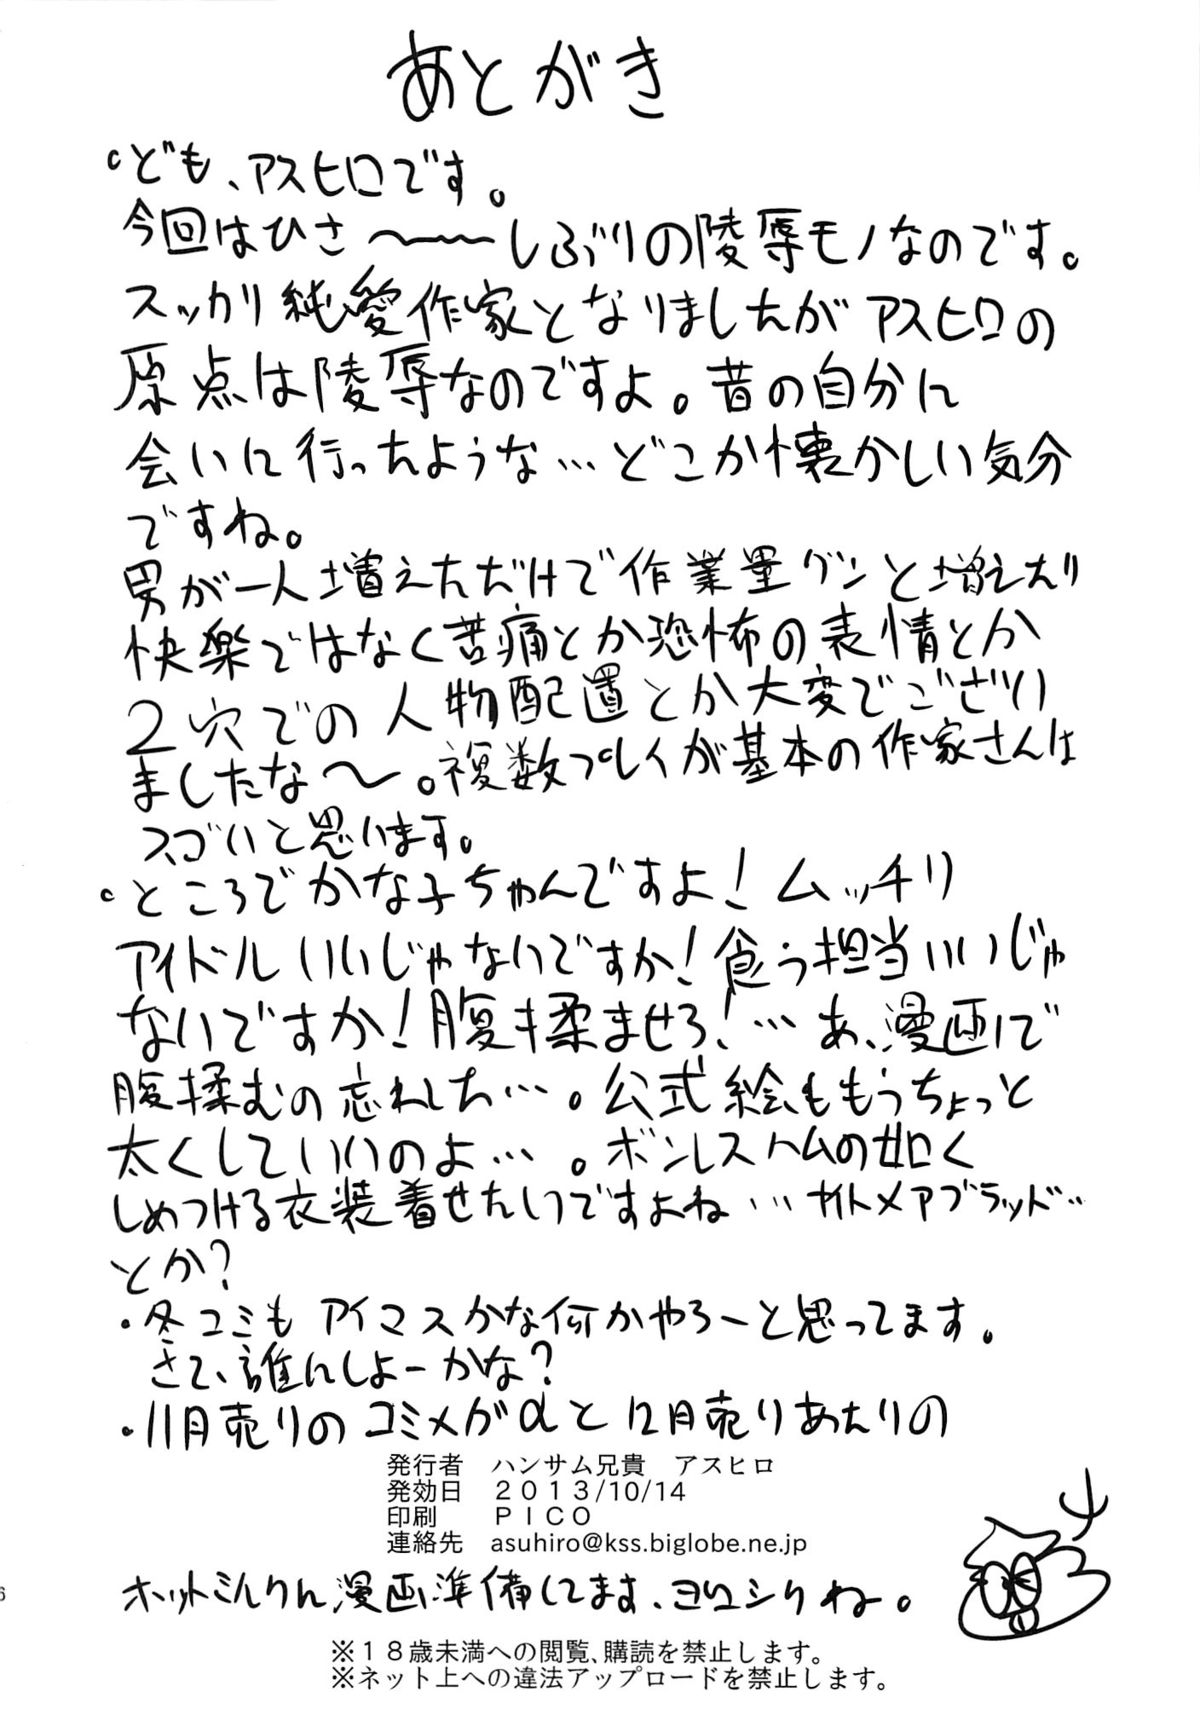 あとがき
。ども、アスヒロです。
今回はひさ〜〜〜しぶりの陵辱モノなのです。
スッカリ純愛作家となりましたがアスヒロの
原点は陵辱なのですよ。昔の自分に
会いに行ったような…どこか懐かしい気分
ですね。
男が一人増えただけで作業量グンと増えたり
快楽ではなく苦痛とか恐怖の表情とか
2穴での人物配置とか大変でござい
ましたな〜。複数プレイが基本の作家さんは
スゴいと思います。
。ところでかな子ちゃんですよ!ムッチリ
アイドルいいじゃないですか!食う担当いいじゃ
ないですか!腹も揉ませろ!…あ、漫画で
腹揉むの忘れした…。公式絵ももうちょっと
太くしていいのよ…。ボンレスハムの如く
しめつける衣装着せたいですよね…ナイトメアブラッド…
とか?
・冬コミもアイマスかな何かやろーと思ってます。
さて、誰にしよーかな?
・11月売りのコミメガαと12月売りあたりの
発行者 ハンサム兄貴 アスヒロ
発効日 2013/10/14
印刷 PICO
連絡先 asuhiro@kss.biglobe.ne.jp
ホットミルクに漫画準備してます、ヨロシクね。
※18歳未満への閲覧、購読を禁止します。
※ネット上への違法アップロードを禁止します。
6